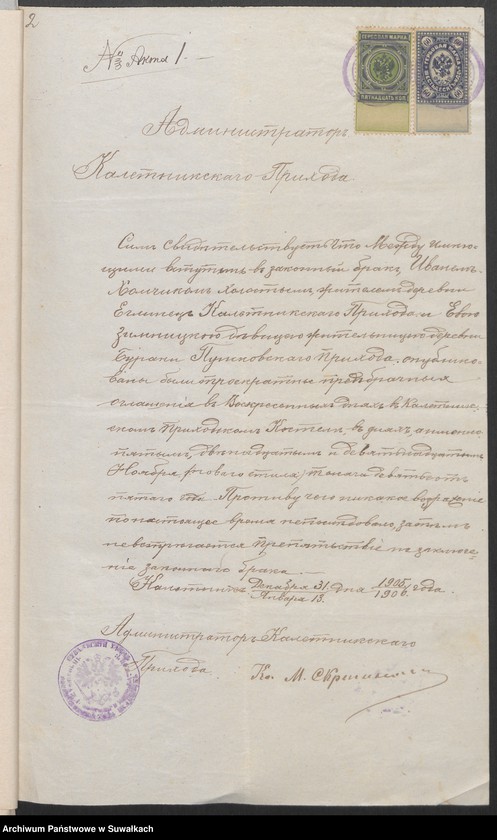 2
№ Акта 1.
ГЕРБОВАЯ МАРКА
ПЯТНАДЦАТЬ КОП.
60
Администраторъ
Калетникскаго Прихода.
Симъ свидѣтельствуетъ что Между имѣю-
щими вступить въ законный бракъ, Иваномъ
холостымъ жителемъ деревни
Еглинецъ Калетникскаго Прихода и Евою
Зимницкою дѣвицею жительницею деревни
Бураки Пуньковскаго прихода опублико-
ваны были троекратныя предбрачныя
оглашенія въ Воскресныхъ дняхъ въ Калетник-
скомъ Приходскомъ Костелѣ, въ дняхъ, а именно
пятымъ, двѣнадцатымъ и девятнадцатымъ
Ноября, (новаго стиля) тысяча девятьсотъ
пятаго Противу чего никакое возраженіе
по настоящее время непослѣдовало, затѣмъ
невстрѣчается препятствій къ заключе-
нію законнаго брака.—
Декабря 31 дня 1905 года.
Января 13. 1906
Администраторъ Калетникскаго
Прихода. Кс. М.
Archiwum Państwowe w Suwałkach